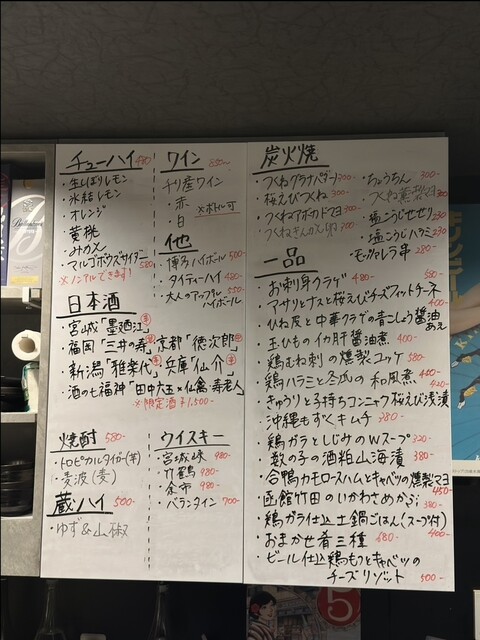 チューハイ 480
・生しぼりレモン
・氷結レモン
・オレンジ
・黄桃
・みかん
・マルゴボウズサイダー 580
※ノンアルできます!
ワイン 550〜
チリ産ワイン
・赤
・白 ※ボトル可
他
・博多ハイボール 500-
・タイティーハイ 480-
・大人のアップル ハイボール 550-
日本酒
・宮城「墨廼江」
・福岡「三井の寿」京都「徳次郎」
・新潟「雅楽代」兵庫「仙介」
・酒の七福神「田中六五×仙禽 寿老人」
※限定酒 ¥1,500-
焼酎 580-
・トロピカルタイガー(芋)
・麦波(麦)
蔵ハイ 500-
・ゆず&山椒
ウイスキー
・宮城峡 980-
・竹鶴 980-
・余市 980-
・バランタイン 700-
炭火焼
・つくねグラナパダーノ 300-
・桜えびつくね 300-
・つくねアボカドマヨ 300-
・つくねぎんがえり 300-
・ちょうちん 300-
・つくね 300-
・塩こうじせせり 230-
・塩こうじハラミ 230-
・モッツァレラ串 280-
一品
・お刺身クラゲ 480-
・アサリとナスと桜えびチーズフィットチーネ 580-
・ひね皮と中華クラゲの青こしょう醤油あえ 400-
・玉ひものイカ肝醤油煮 400-
・鶏むね刺の燻製ユッケ 580-
・鶏ハラミと冬瓜の和風煮 400-
・きゅうりと子持ちコンニャク桜えび浅漬 420-
・沖縄もずくキムチ 380-
・鶏ガラとしじみのWスープ 320-
・数の子の酒粕山海漬 380-
・合鴨カモロースハムとキャベツの燻製マヨ 450-
・函館竹田のいかわさめかぶ 380-
・鶏ガラ仕込土鍋ごはん(スープ付) 400-
・おまかせ肴三種 680-
・ビール仕込鶏もつとキャベツの
チーズリゾット 500-
Ballantine's
5